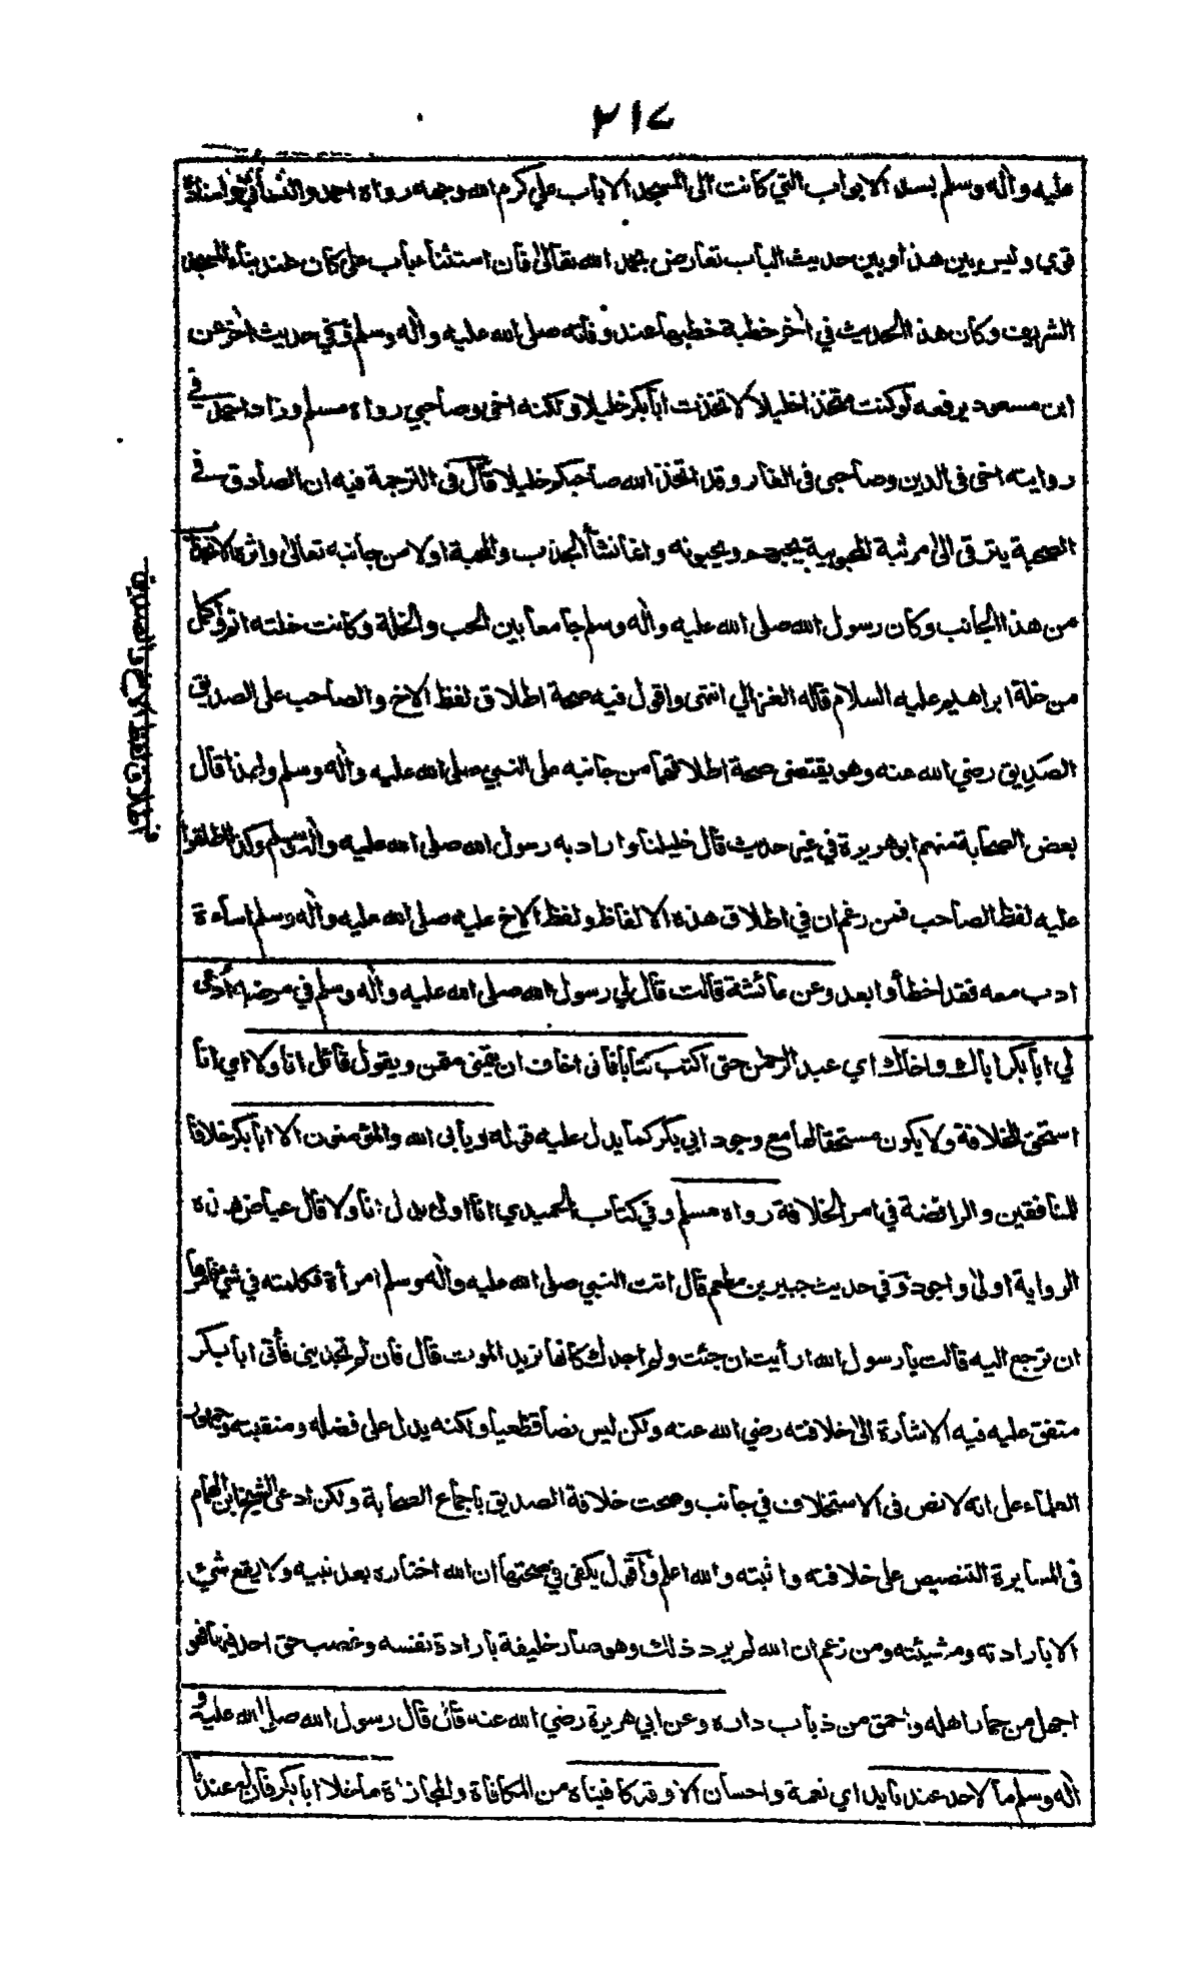 ٢١٧
عليه وآله وسلم بسد الابواب التي كانت الى المسجد الا باب علي كرم الله وجهه رواه احمد والنسائي واسناده
قوي وليس بين هذا وبين حديث الباب تعارض بحمد الله تعالى فان استثناء باب علي كان عند بناء المسجد
الشريف وكان هذا الحديث في آخر خطبة خطبها عند وفاته صلى الله عليه وآله وسلم وفي حديث آخر عن
ابن مسعود يرفعه لو كنت متخذا خليلا لاتخذت ابا بكر خليلا ولكنه اخي وصاحبي رواه مسلم وزاد احمد في
روايته اخي في الدين وصاحبي في الغار وقد اتخذ الله صاحبكم خليلا قال في الترجمة فيه ان الصادق في
الصحبة يترقى الى مرتبة المحبوبية يحبهم ويحبونه وانما نشأ الجذب والمحبة اولا من جانبه تعالى واثره
من هذا الجانب وكان رسول الله صلى الله عليه وآله وسلم جامعا بين الحب والخلة وكانت خلته اتم واكمل
من خلة ابراهيم عليه السلام قاله الغزالي انتهى واقول فيه صحة اطلاق لفظ الاخ والصاحب على الصديق
الصديق رضي الله عنه وهو يقتضي صحة اطلاقهما من جانبه على النبي صلى الله عليه وآله وسلم ولهذا قال
بعض الصحابة منهم ابو هريرة في غير حديث قال خليلنا واراد به رسول الله صلى الله عليه وآله وسلم وكذا اطلقوا
عليه لفظ الصاحب فمن زعم ان في اطلاق هذه الالفاظ ولفظ الاخ عليه صلى الله عليه وآله وسلم اساءة
ادب معه فقد اخطأ وابعد وعن عائشة قالت قال لي رسول الله صلى الله عليه وآله وسلم في مرضه ادعي
لي ابا بكر اباك واخاك اي عبد الرحمن حتى اكتب كتابا فاني اخاف ان يتمنى متمن ويقول قائل انا ولا اي انا
استحق الخلافة ولا يكون مستحقا لها مع وجود ابي بكر كما يدل عليه قوله ويأبى الله والمؤمنون الا ابا بكر خلافا
للمنافقين والرافضة في امر الخلافة رواه مسلم وفي كتاب الحميدي انا اولى بدل انا ولا قال عياض هذه
الرواية اولى واجود وفي حديث جبير بن مطعم قال اتت النبي صلى الله عليه وآله وسلم امرأة فكلمته في شئ فامرها
ان ترجع اليه قالت يا رسول الله ارأيت ان جئت ولم اجدك كانها تريد الموت قال فان لم تجديني فأتي ابا بكر
متفق عليه فيه الاشارة الى خلافته رضي الله عنه ولكن ليس نصا قطعيا ولكنه يدل على فضله ومنقبته وجمهور
العلماء على انه لا نص في الاستخلاف في جانب وصحت خلافة الصديق باجماع الصحابة ولكن ادعى الشيخ ابن الهمام
في المسايرة التنصيص على خلافته واثبته والله اعلم واقول يكفي في صحتها ان الله اختاره بعد نبيه ولا يقع شئ
الا بارادته ومشيئته ومن زعم ان الله لم يرد ذلك وهو صار خليفة بارادة نفسه وغصب حق احد فيها فهو
اجهل من حمار اهله واحمق من ذباب داره وعن ابي هريرة رضي الله عنه قال قال رسول الله صلى الله عليه و
آله وسلم ما لاحد عندنا يد اي نعمة واحسان الا وقد كافيناه من المكافاة والمجازاة ما خلا ابا بكر فان له عندنا